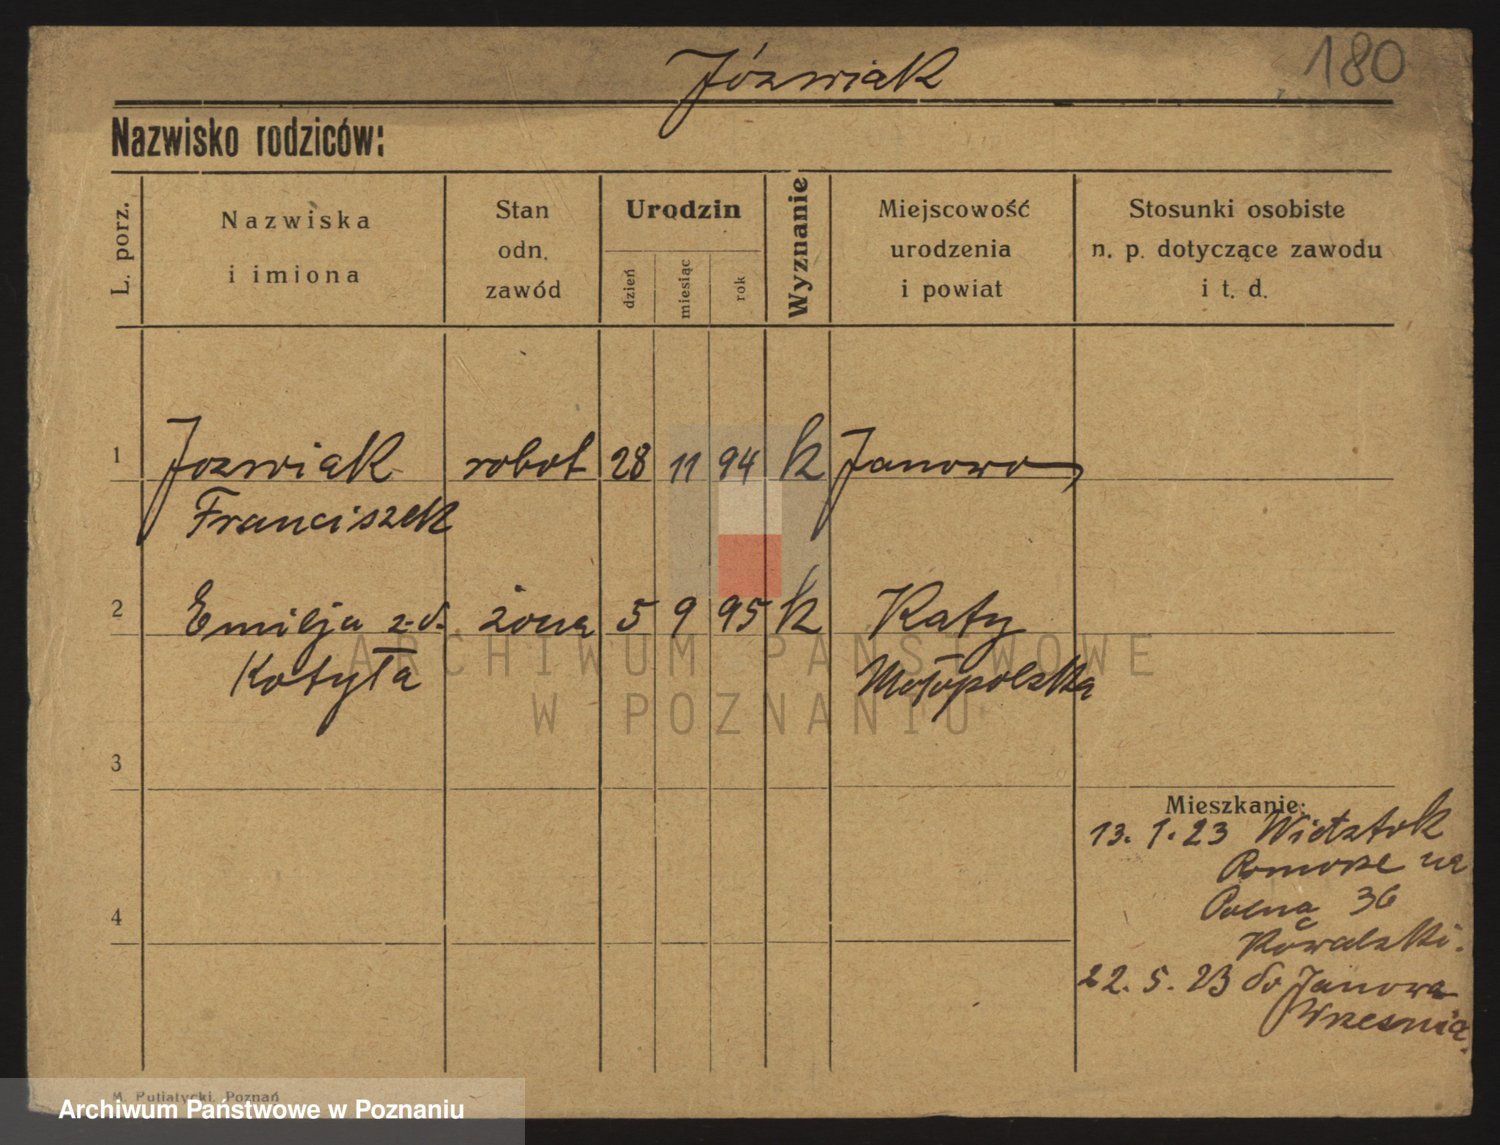 180
Józwiak
Nazwisko rodziców:
L. porz.
Nazwiska
i imiona
Stan
odn.
zawód
Urodzin
dzień
miesiąc
rok
Wyznanie
Miejscowość
urodzenia
i powiat
Stosunki osobiste
n. p. dotyczące zawodu
i t. d.
1 Jozwiak robot 28 11 94 k Janowo
Franciszek
2 Emilja z d. żona 5 9 95 k Katy
Kotyła
Małopolska
ARCHIWUM PAŃSTWOWE
W POZNANIU
3
Mieszkanie:
13. 1. 23
na
Polna 36
Kowalski.
4
22. 5. 23 do Janowa
Wrzesnia.
M. Putiatycki, Poznań
Archiwum Państwowe w Poznaniu